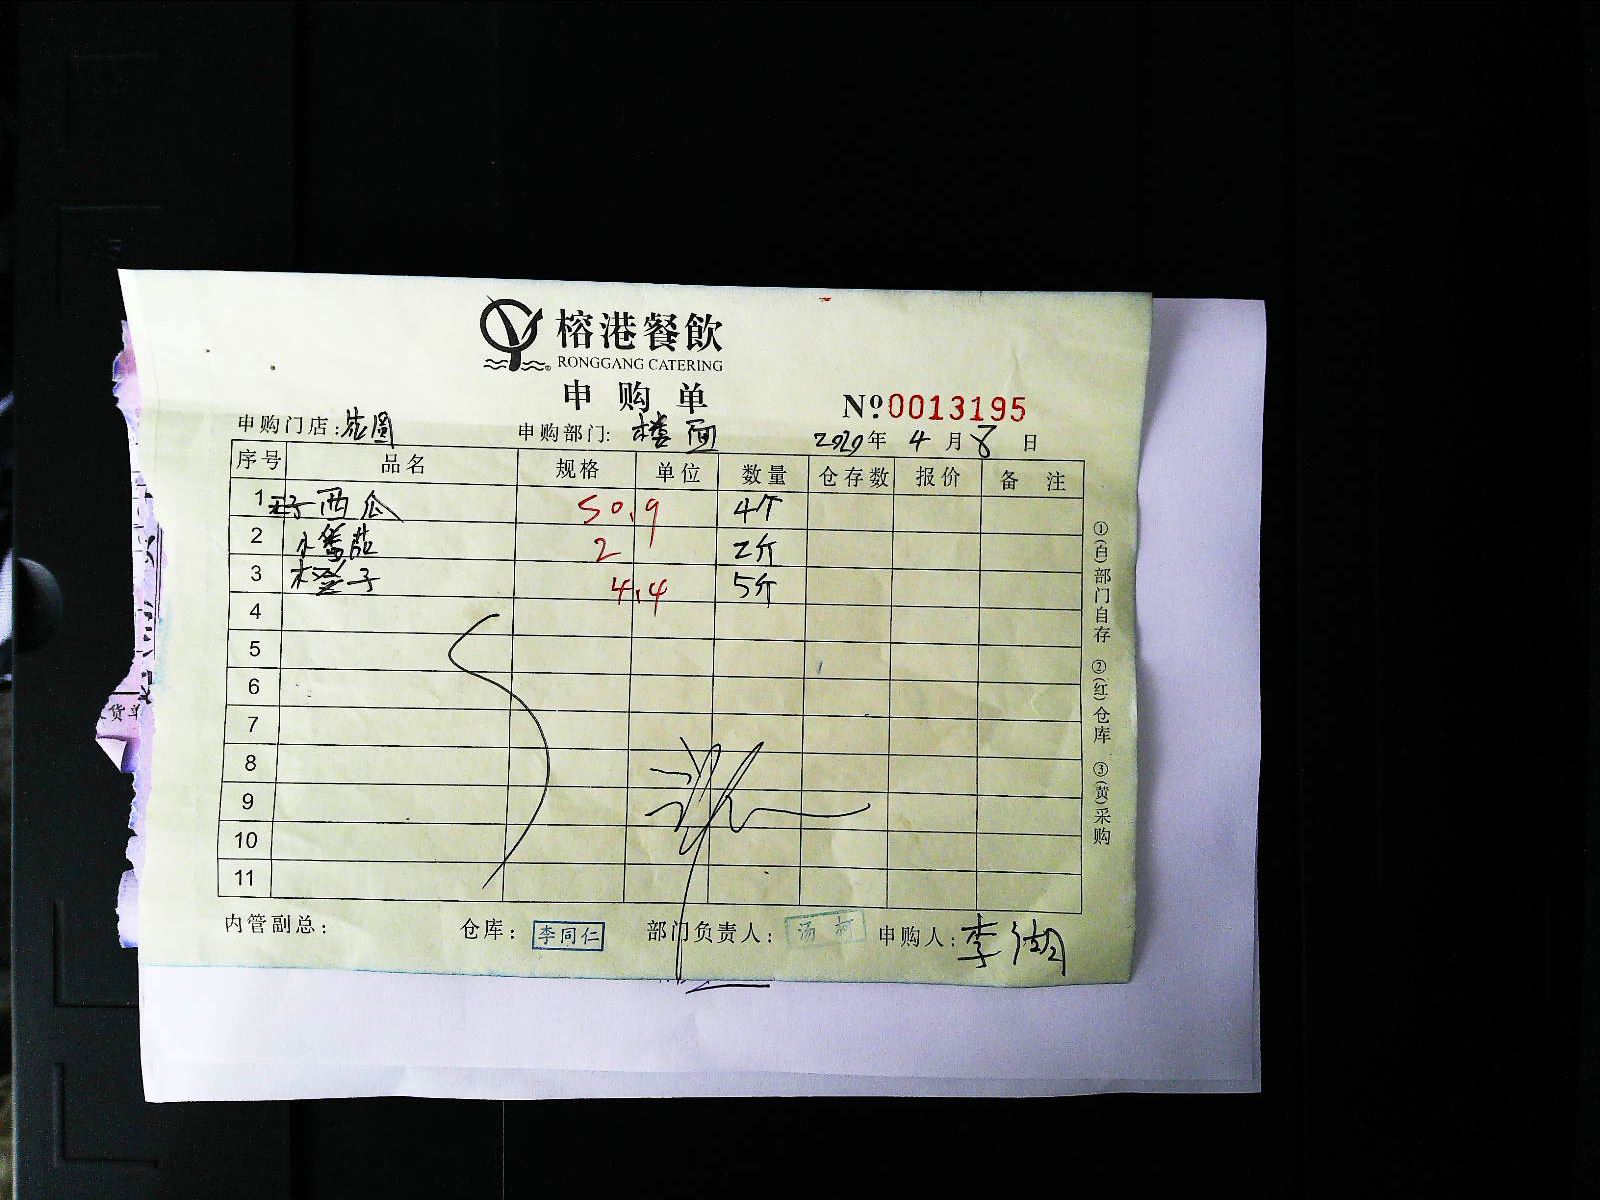 榕港餐飲
RONGGANG CATERING
申购单
№0013195
申购门店: 申购部门: 楼面 2020年 4 月 8 日
序号 品名 规格 单位 数量 仓存数 报价 备 注
1 西瓜 50.9 4个
2 小番茄 2 2斤
3 橙子 4.4 5斤
4
5
6
7
8
9
10
11
①(白)部门自存 ②(红)仓库 ③(黄)采购
内管副总: 仓库: 李同仁 部门负责人: 汤 申购人: 李
货单